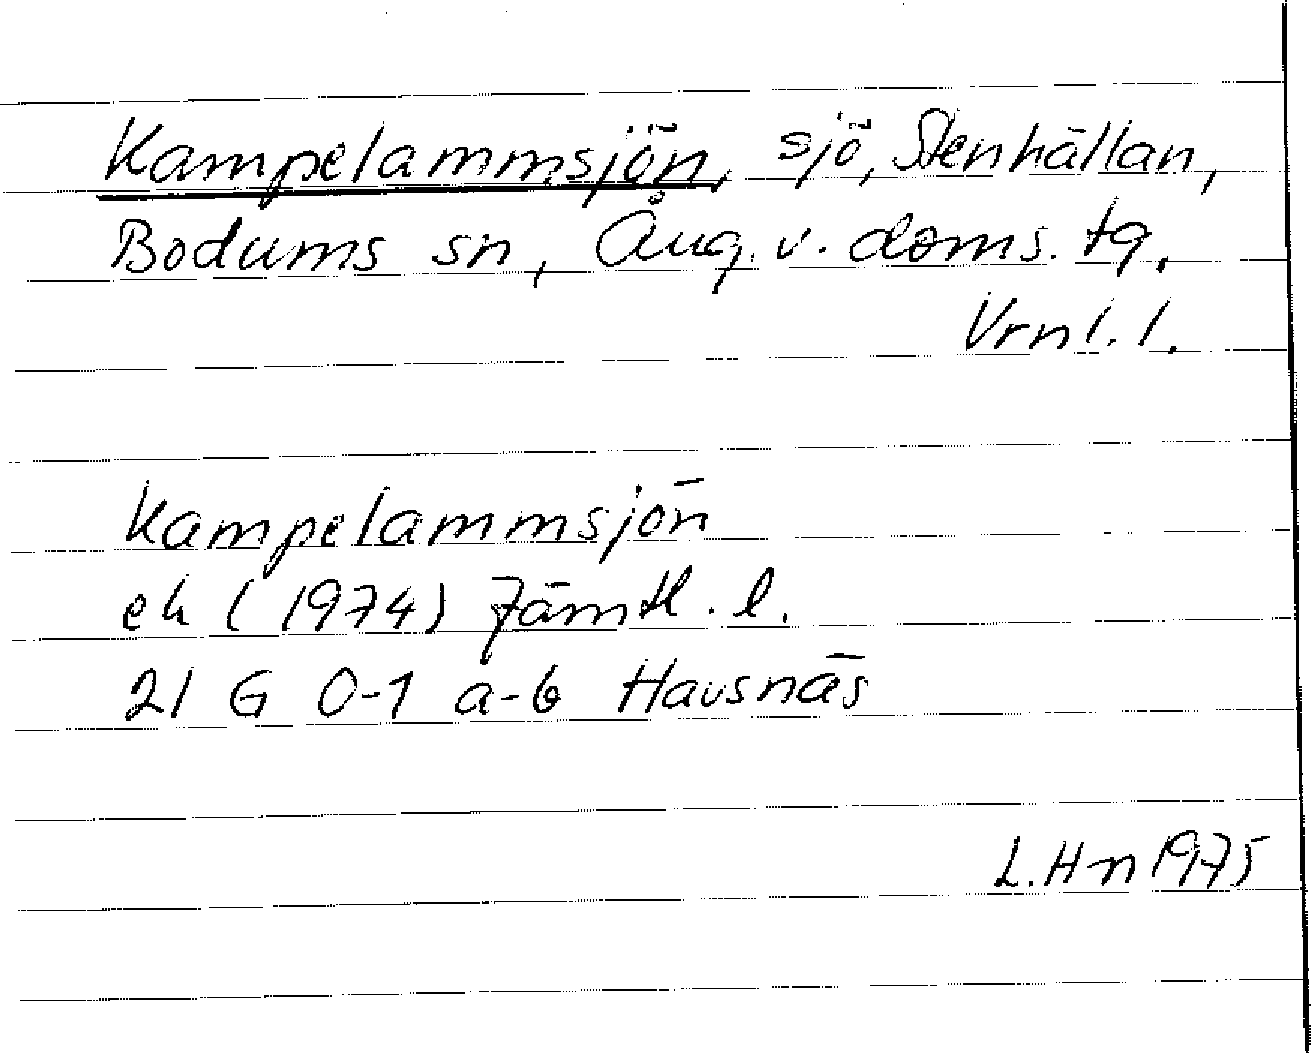 Kampelammsjön, sjö, Stenhällan,
Bodums sn, Ång. v. doms. tg.
Vrnl. l.
Kampelammsjön
ek (1974) Jämtl. l.
21 G 0-1 a-b Havsnäs
L. Hn 1975